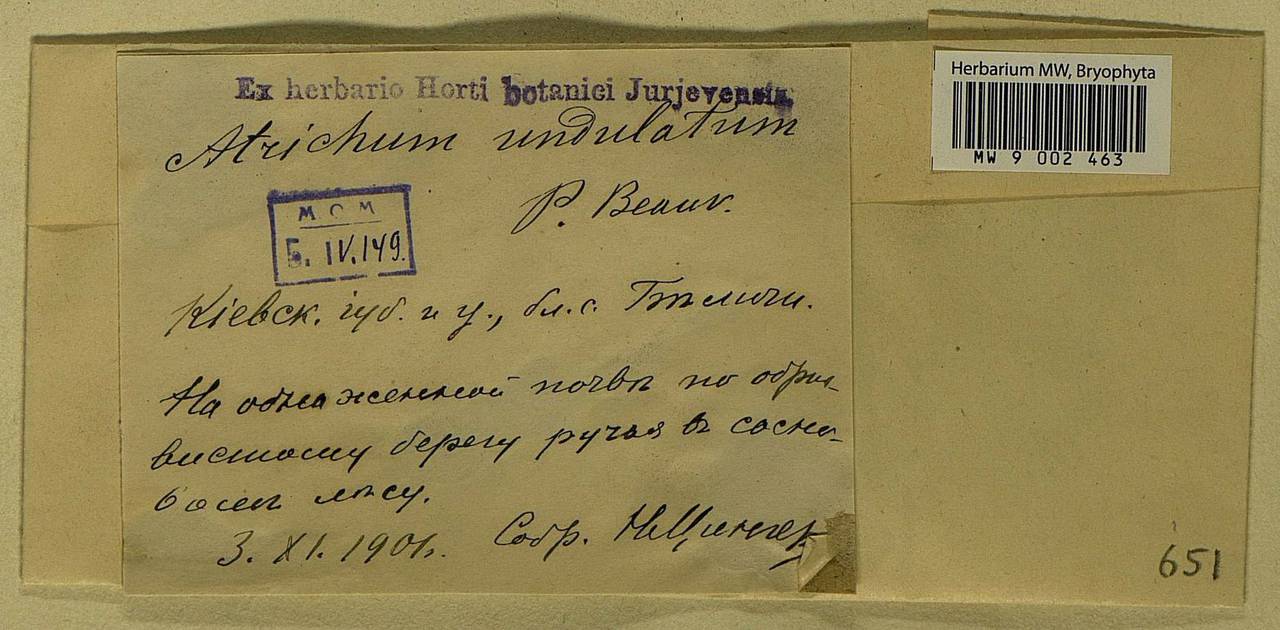 Ex herbario Horti botanici Jurjevensis.
Atrichum undulatum
P. Beauv.
МОМ
Б. IV.149.
Кіевск. губ. и у., бл. с.
На обнаженной почвѣ по обры-
вистому берегу ручья въ сосно-
вомъ лѣсу.
3. XI. 1901. Собр. Н. Цингер
Herbarium MW, Bryophyta
MW 9 002 463
651